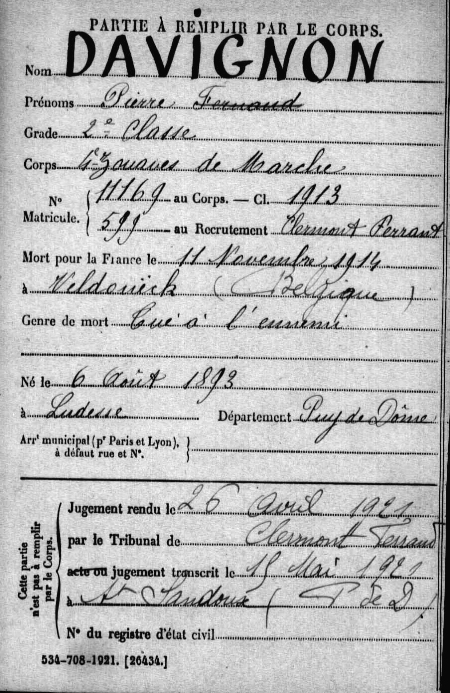 PARTIE À REMPLIR PAR LE CORPS.
Nom DAVIGNON
Prénoms Pierre Fernand
Grade 2e Classe
Corps 4e Zouaves de Marche
N° Matricule. { 11169 au Corps. — Cl. 1913
599 au Recrutement Clermont Ferrant
Mort pour la France le 11 Novembre 1914
à (Belgique)
Genre de mort Tué à l'ennemi
Né le 6 Août 1893
à Ludesse Département Puy de Dôme
Arrt municipal (pr Paris et Lyon), }
à défaut rue et N°.
Cette partie n'est pas à remplir par le Corps.
Jugement rendu le 26 Avril 1921
par le Tribunal de Clermont Ferrand
acte ou jugement transcrit le 15 Mai 1921
à St Sandoux (P de D)
N° du registre d'état civil
534-708-1921. [26434.]